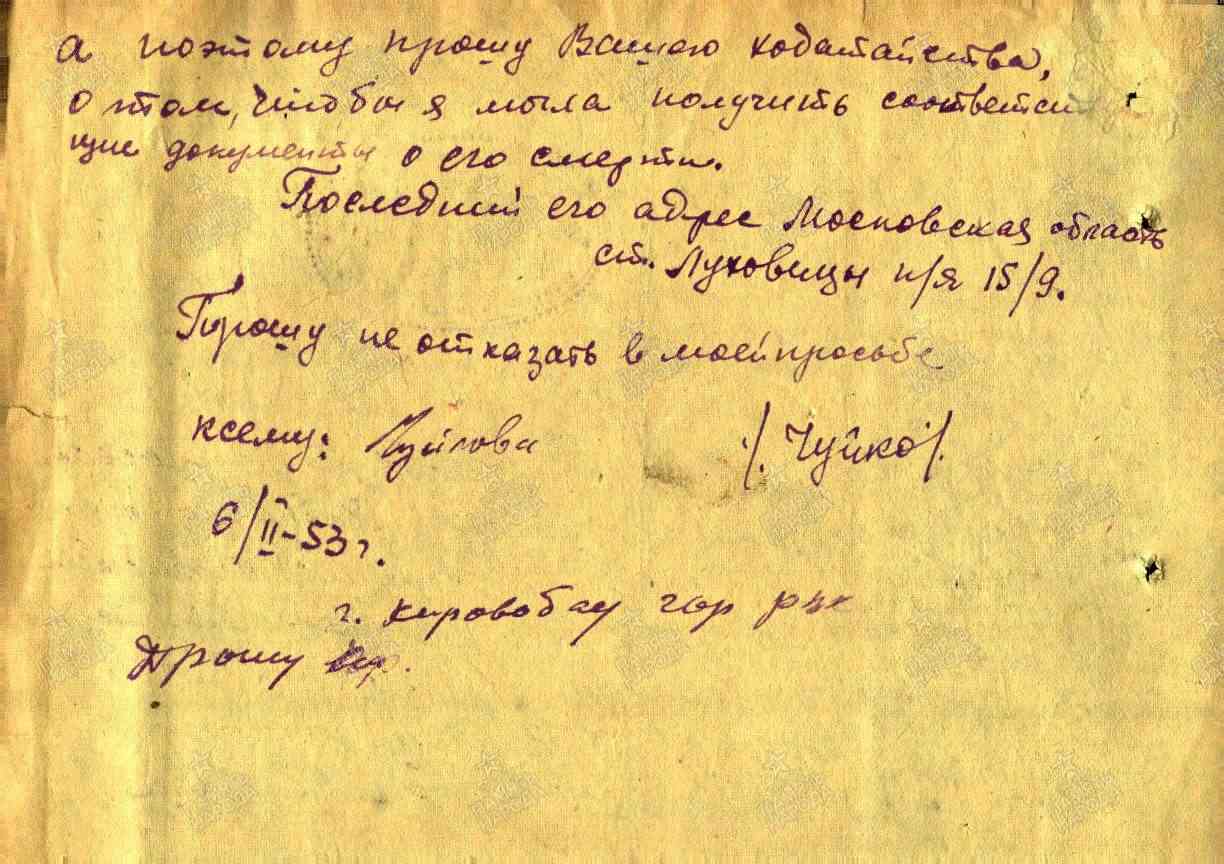 а поэтому прошу Вашего ходатайства,
о том, чтобы я могла получить соответст
щие документы о его смерти.
Последний его адрес Московская область
ст. Луховицы п/я 15/9.
Прошу не отказать в моей просьбе
к сему:
/. Чуйко /.
6/II-53 г.
г. Кировобад гор
Прошу